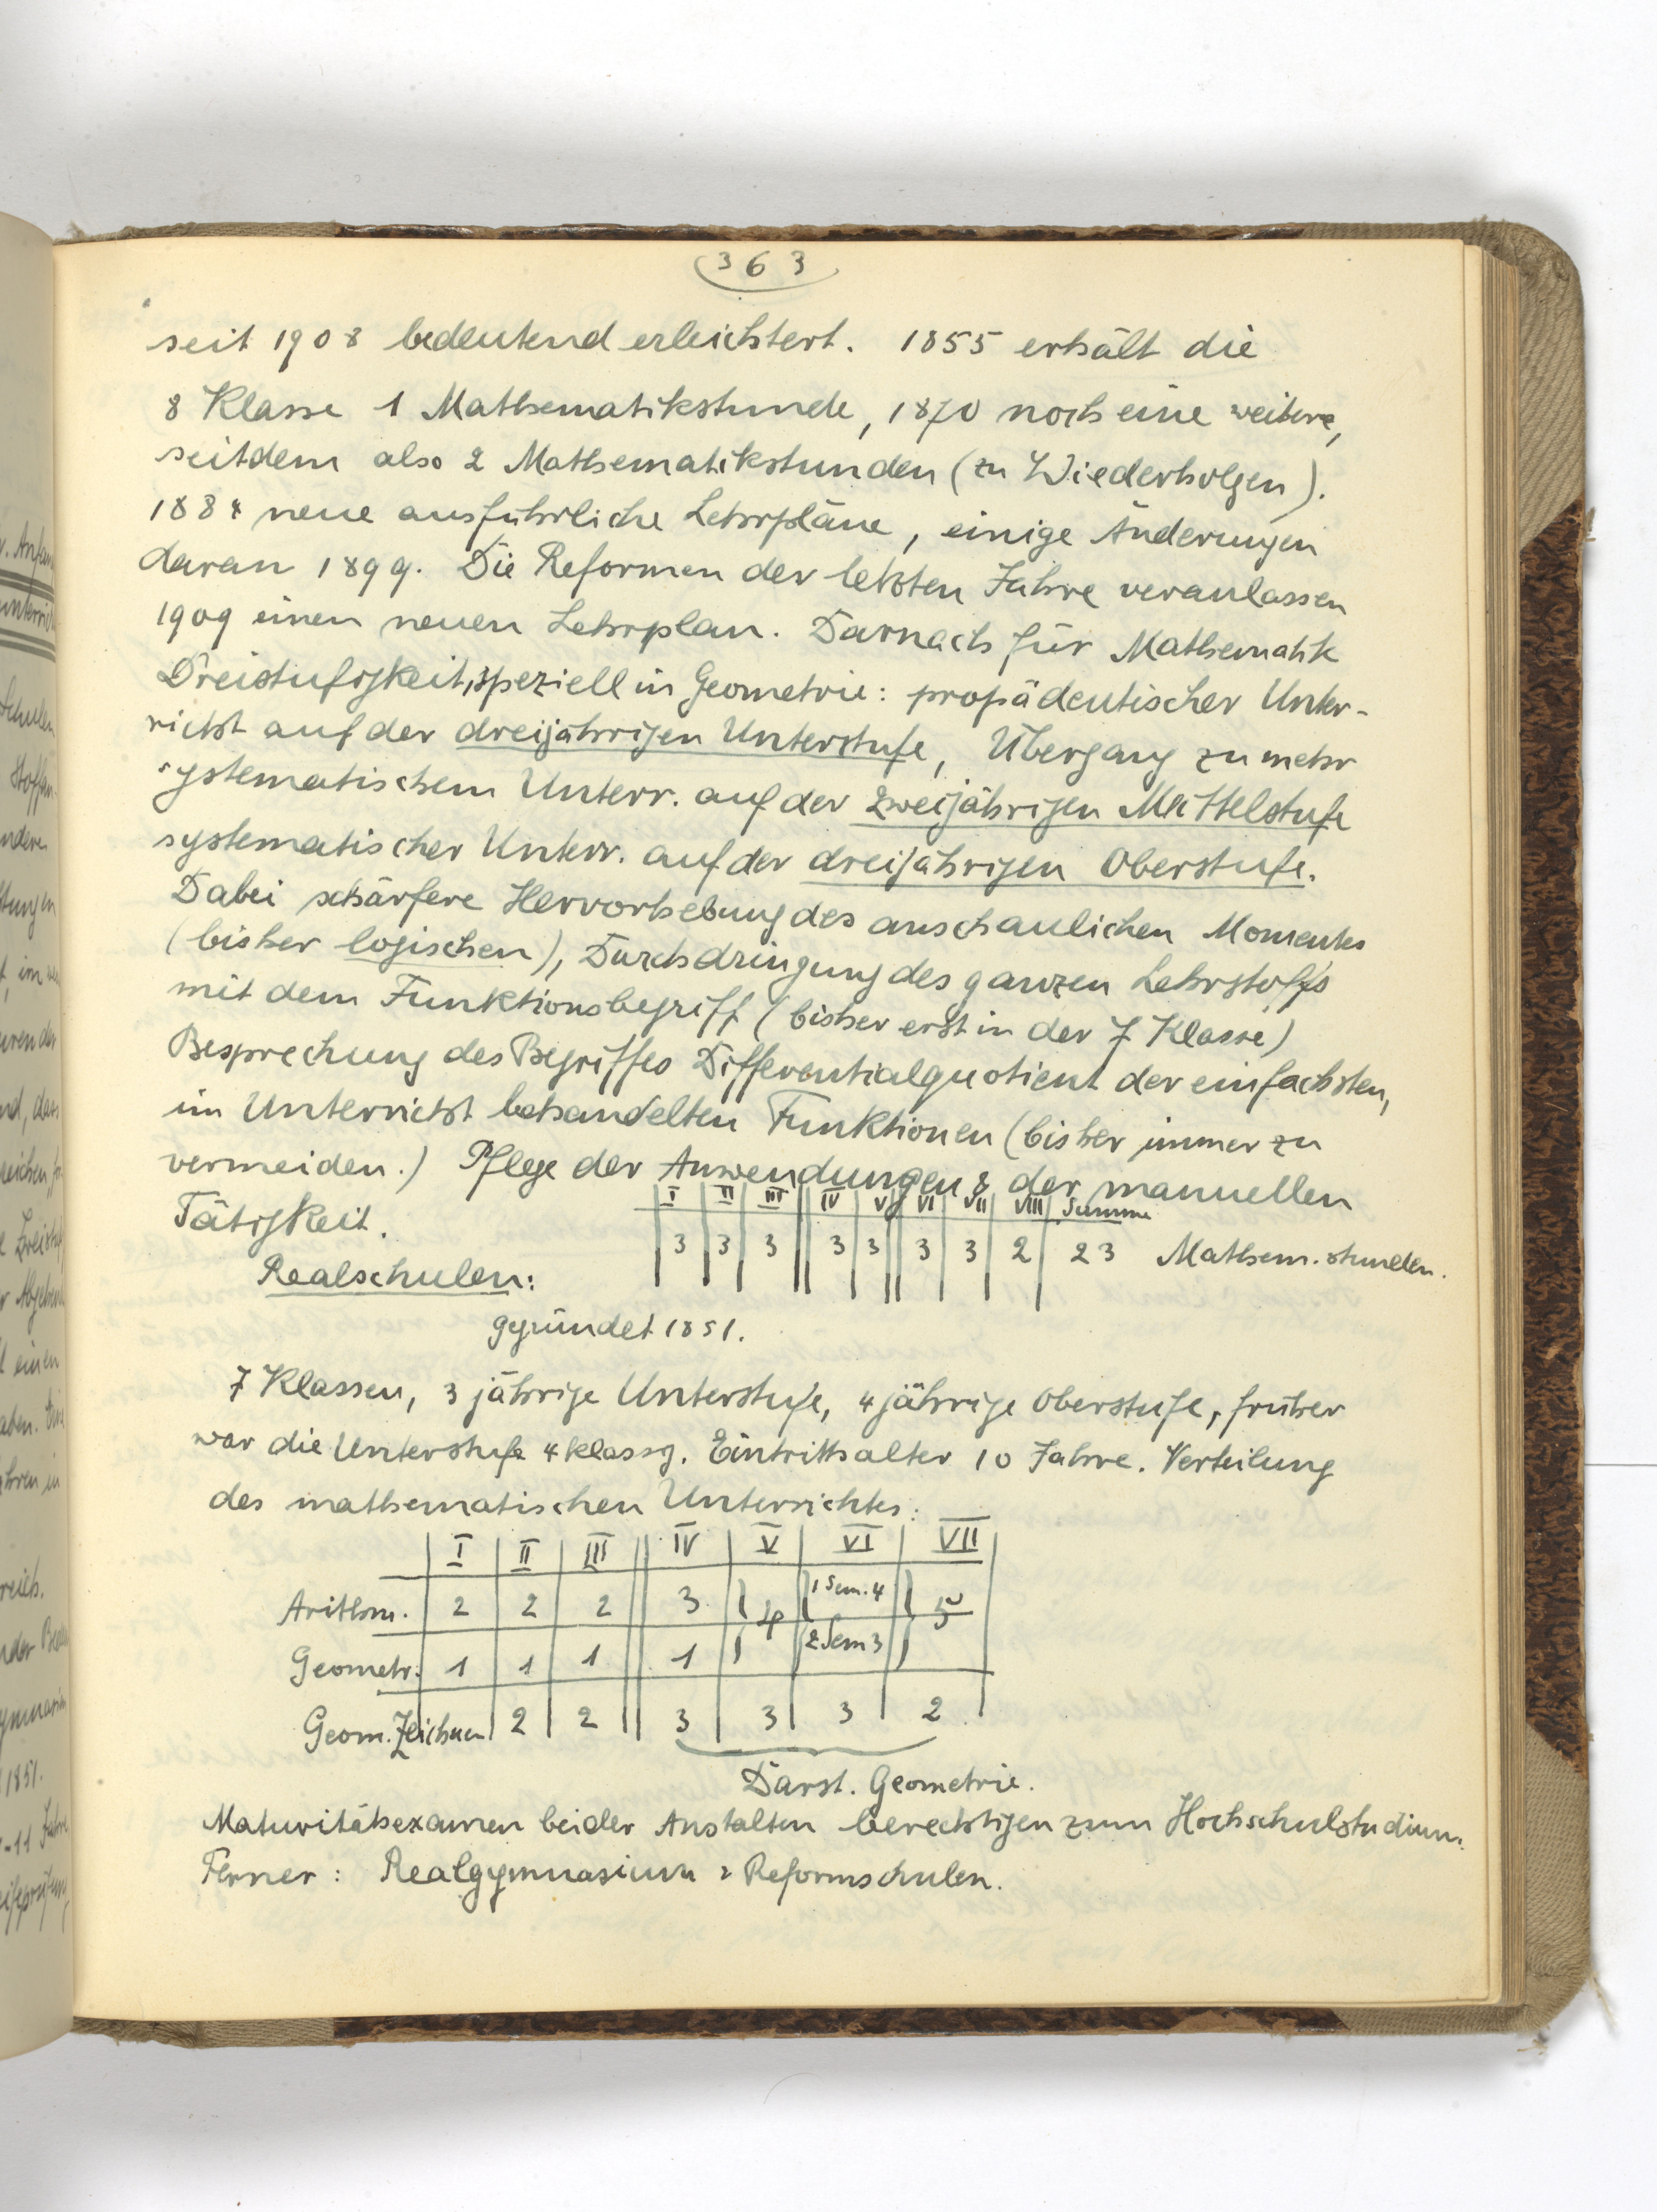 363
seit 1908 bedeutend erleichtert. 1855 erhält die
8 Klasse 1 Mathematikstunde, 1870 noch eine weitere,
seitdem also 2 Mathematikstunden (zu Wiederholgen).
1884 neue ausführliche Lehrpläne, einige Änderungen
daran 1899. Die Reformen der letzten Jahre veranlassen
1909 einen neuen Lehrplan. Darnach für Mathematik
Dreistufigkeit, speziell in Geometrie: propädeutischer Unter-
richt auf der dreijährigen Unterstufe, Übergang zu mehr
systematischem Unterr. auf der zweijährigen Mittelstufe
systematischer Unterr. auf der dreijährigen Oberstufe.
Dabei schärfere Hervorhebung des anschaulichen Momentes
(bisher logischen), Durchdringung des ganzen Lehrstoffs
mit dem Funktionsbegriff (bisher erst in der 7 Klasse)
Besprechung des Begriffes Differentialquotient der einfachsten,
im Unterricht behandelten Funktionen (bisher immer zu
vermeiden.) Pflege der Anwendungen & der manuellen
Tätigkeit.
I II III IV V VI VII VIII Summe
3 3 3 3 3 3 3 2 23 Mathem. stunden.
Realschulen:
gegründet 1851.
7 Klassen, 3 jährige Unterstufe, 4 jährige Oberstufe, früher
war die Unterstufe 4 klassg. Eintrittsalter 10 Jahre. Verteilung
des mathematischen Unterrichtes:
I II III IV V VI VII
Arithm. 2 2 2 3 4 1 Sem. 4 5
Geometr. 1 1 1 1 2 Sem 3
Geom. Zeichnen 2 2 3 3 3 2
Darst. Geometrie.
Maturitätsexamen beider Anstalten berechtigen zum Hochschulstudium.
Ferner: Realgymnasium & Reformschulen.